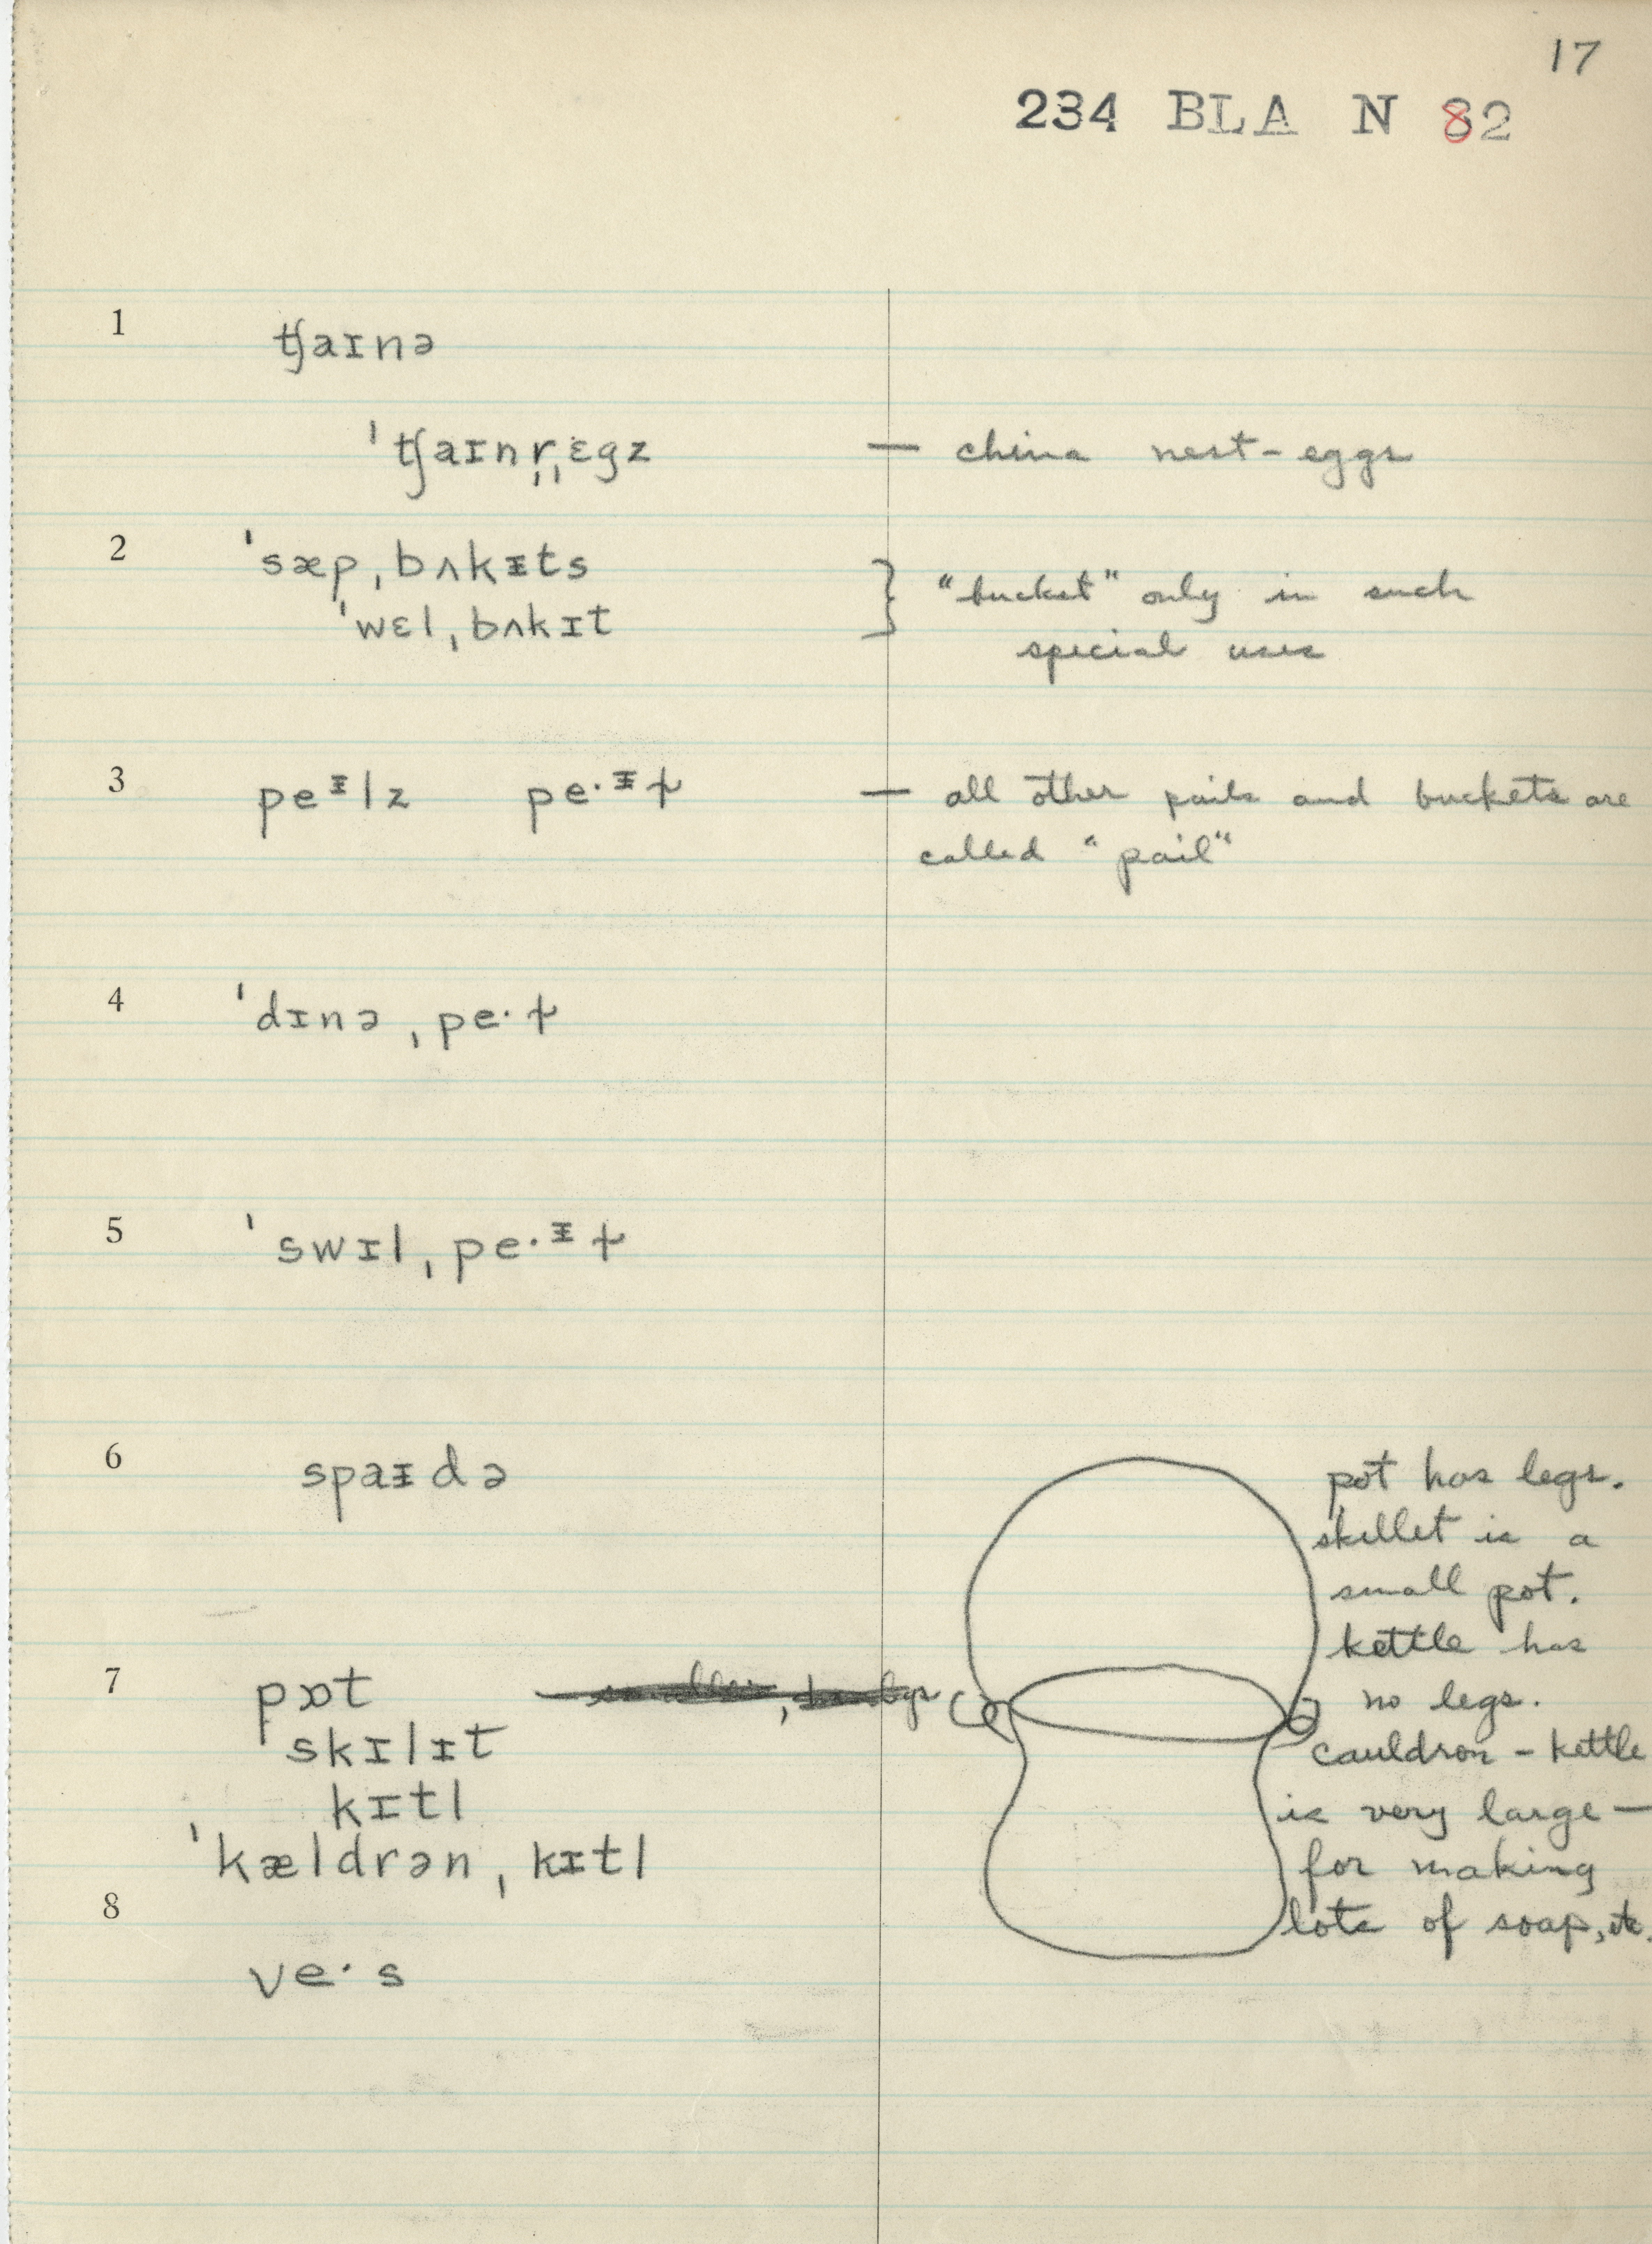 17
234 BLA N 82
1
tʃaɪnə
ˈtʃaɪnr̩ˌɛgz — china nest-eggs
2
ˈsæpˌbʌkᵻts
ˈwɛlˌbʌkɪt
} "bucket" only in such
special uses
3
peᵻlz peˑᵻɫ — all other pails and buckets are
called "pail"
4
ˈdɪnəˌpeˑɫ
5
ˈswɪlˌpeˑᵻɫ
6
spaᵻdə
7
pɒt
skɪlɪt
kɪtl
ˈkældrənˌkɪtl
8
veˑs
pot has legs.
skillet is a
small pot.
kettle has
no legs.
cauldron - kettle
is very large —
for making
lots of soap, etc.